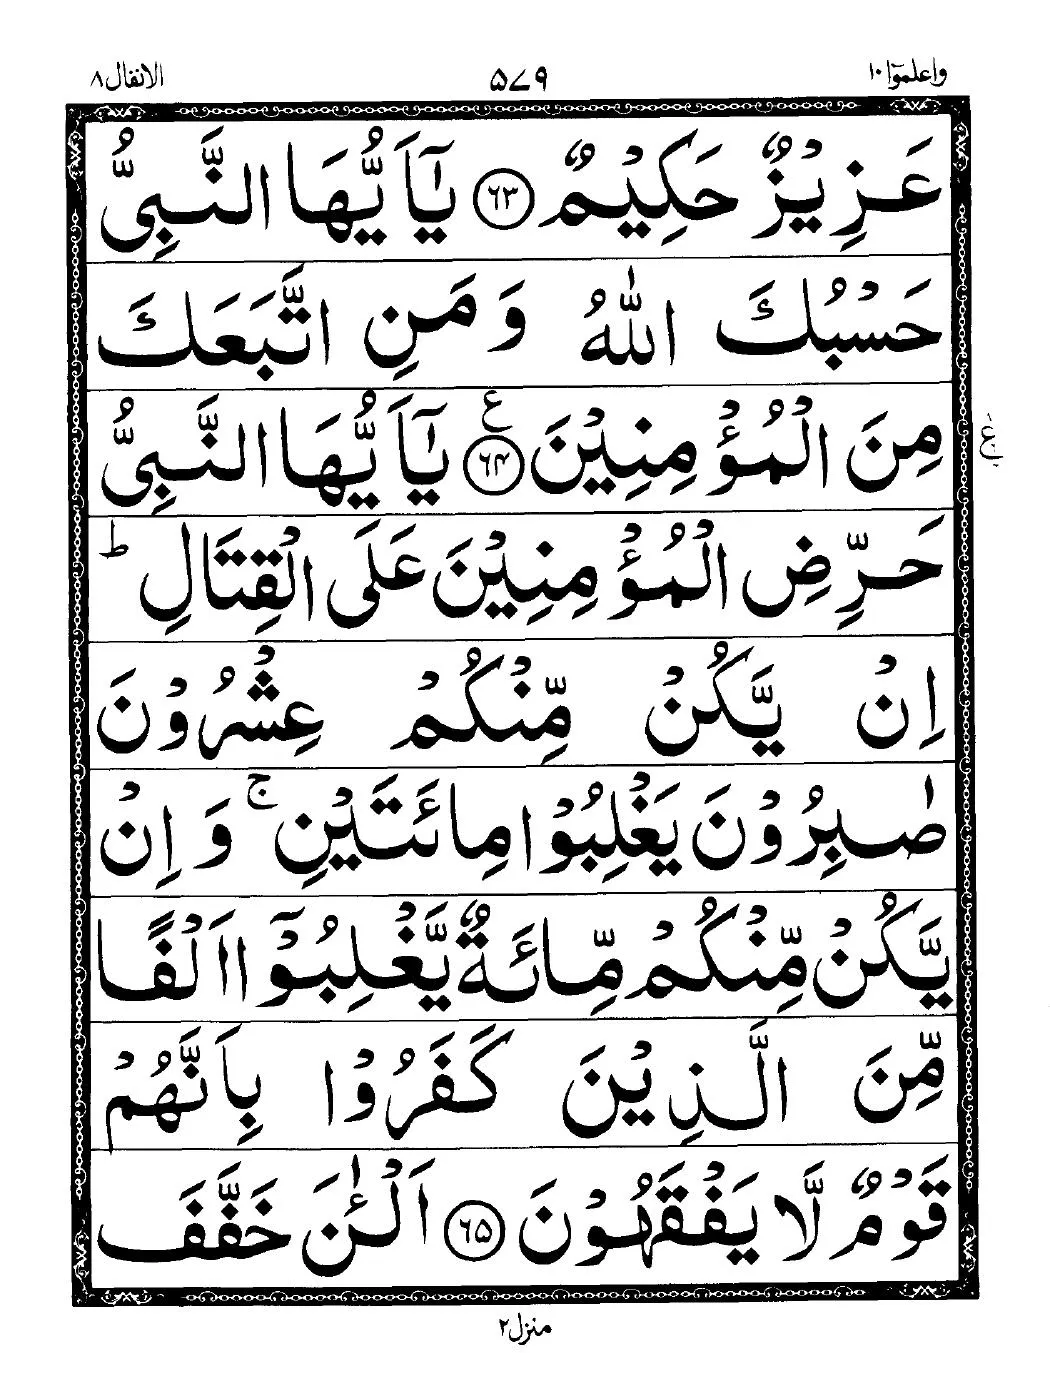 واعلموٓا ١٠ ۵٧٩ الانفال ٨
عَزِيْزٌ حَكِيْمٌ ﴿٦٣﴾ يٰۤاَيُّهَا النَّبِىُّ
حَسْبُكَ اللّٰهُ وَمَنِ اتَّبَعَكَ
مِنَ الْمُؤْمِنِيْنَ ﴿٦۴﴾ ع يٰۤاَيُّهَا النَّبِىُّ
حَرِّضِ الْمُؤْمِنِيْنَ عَلَى الْقِتَالِ ؕ
اِنْ يَّكُنْ مِّنْكُمْ عِشْرُوْنَ
صٰبِرُوْنَ يَغْلِبُوْا مِائَتَيْنِ ۚ وَاِنْ
يَّكُنْ مِّنْكُمْ مِّائَةٌ يَّغْلِبُوْۤا اَلْفًا
مِّنَ الَّذِيْنَ كَفَرُوْا بِاَنَّهُمْ
قَوْمٌ لَّا يَفْقَهُوْنَ ﴿٦۵﴾ اَلْـٰٔنَ خَفَّفَ
منزل ٢